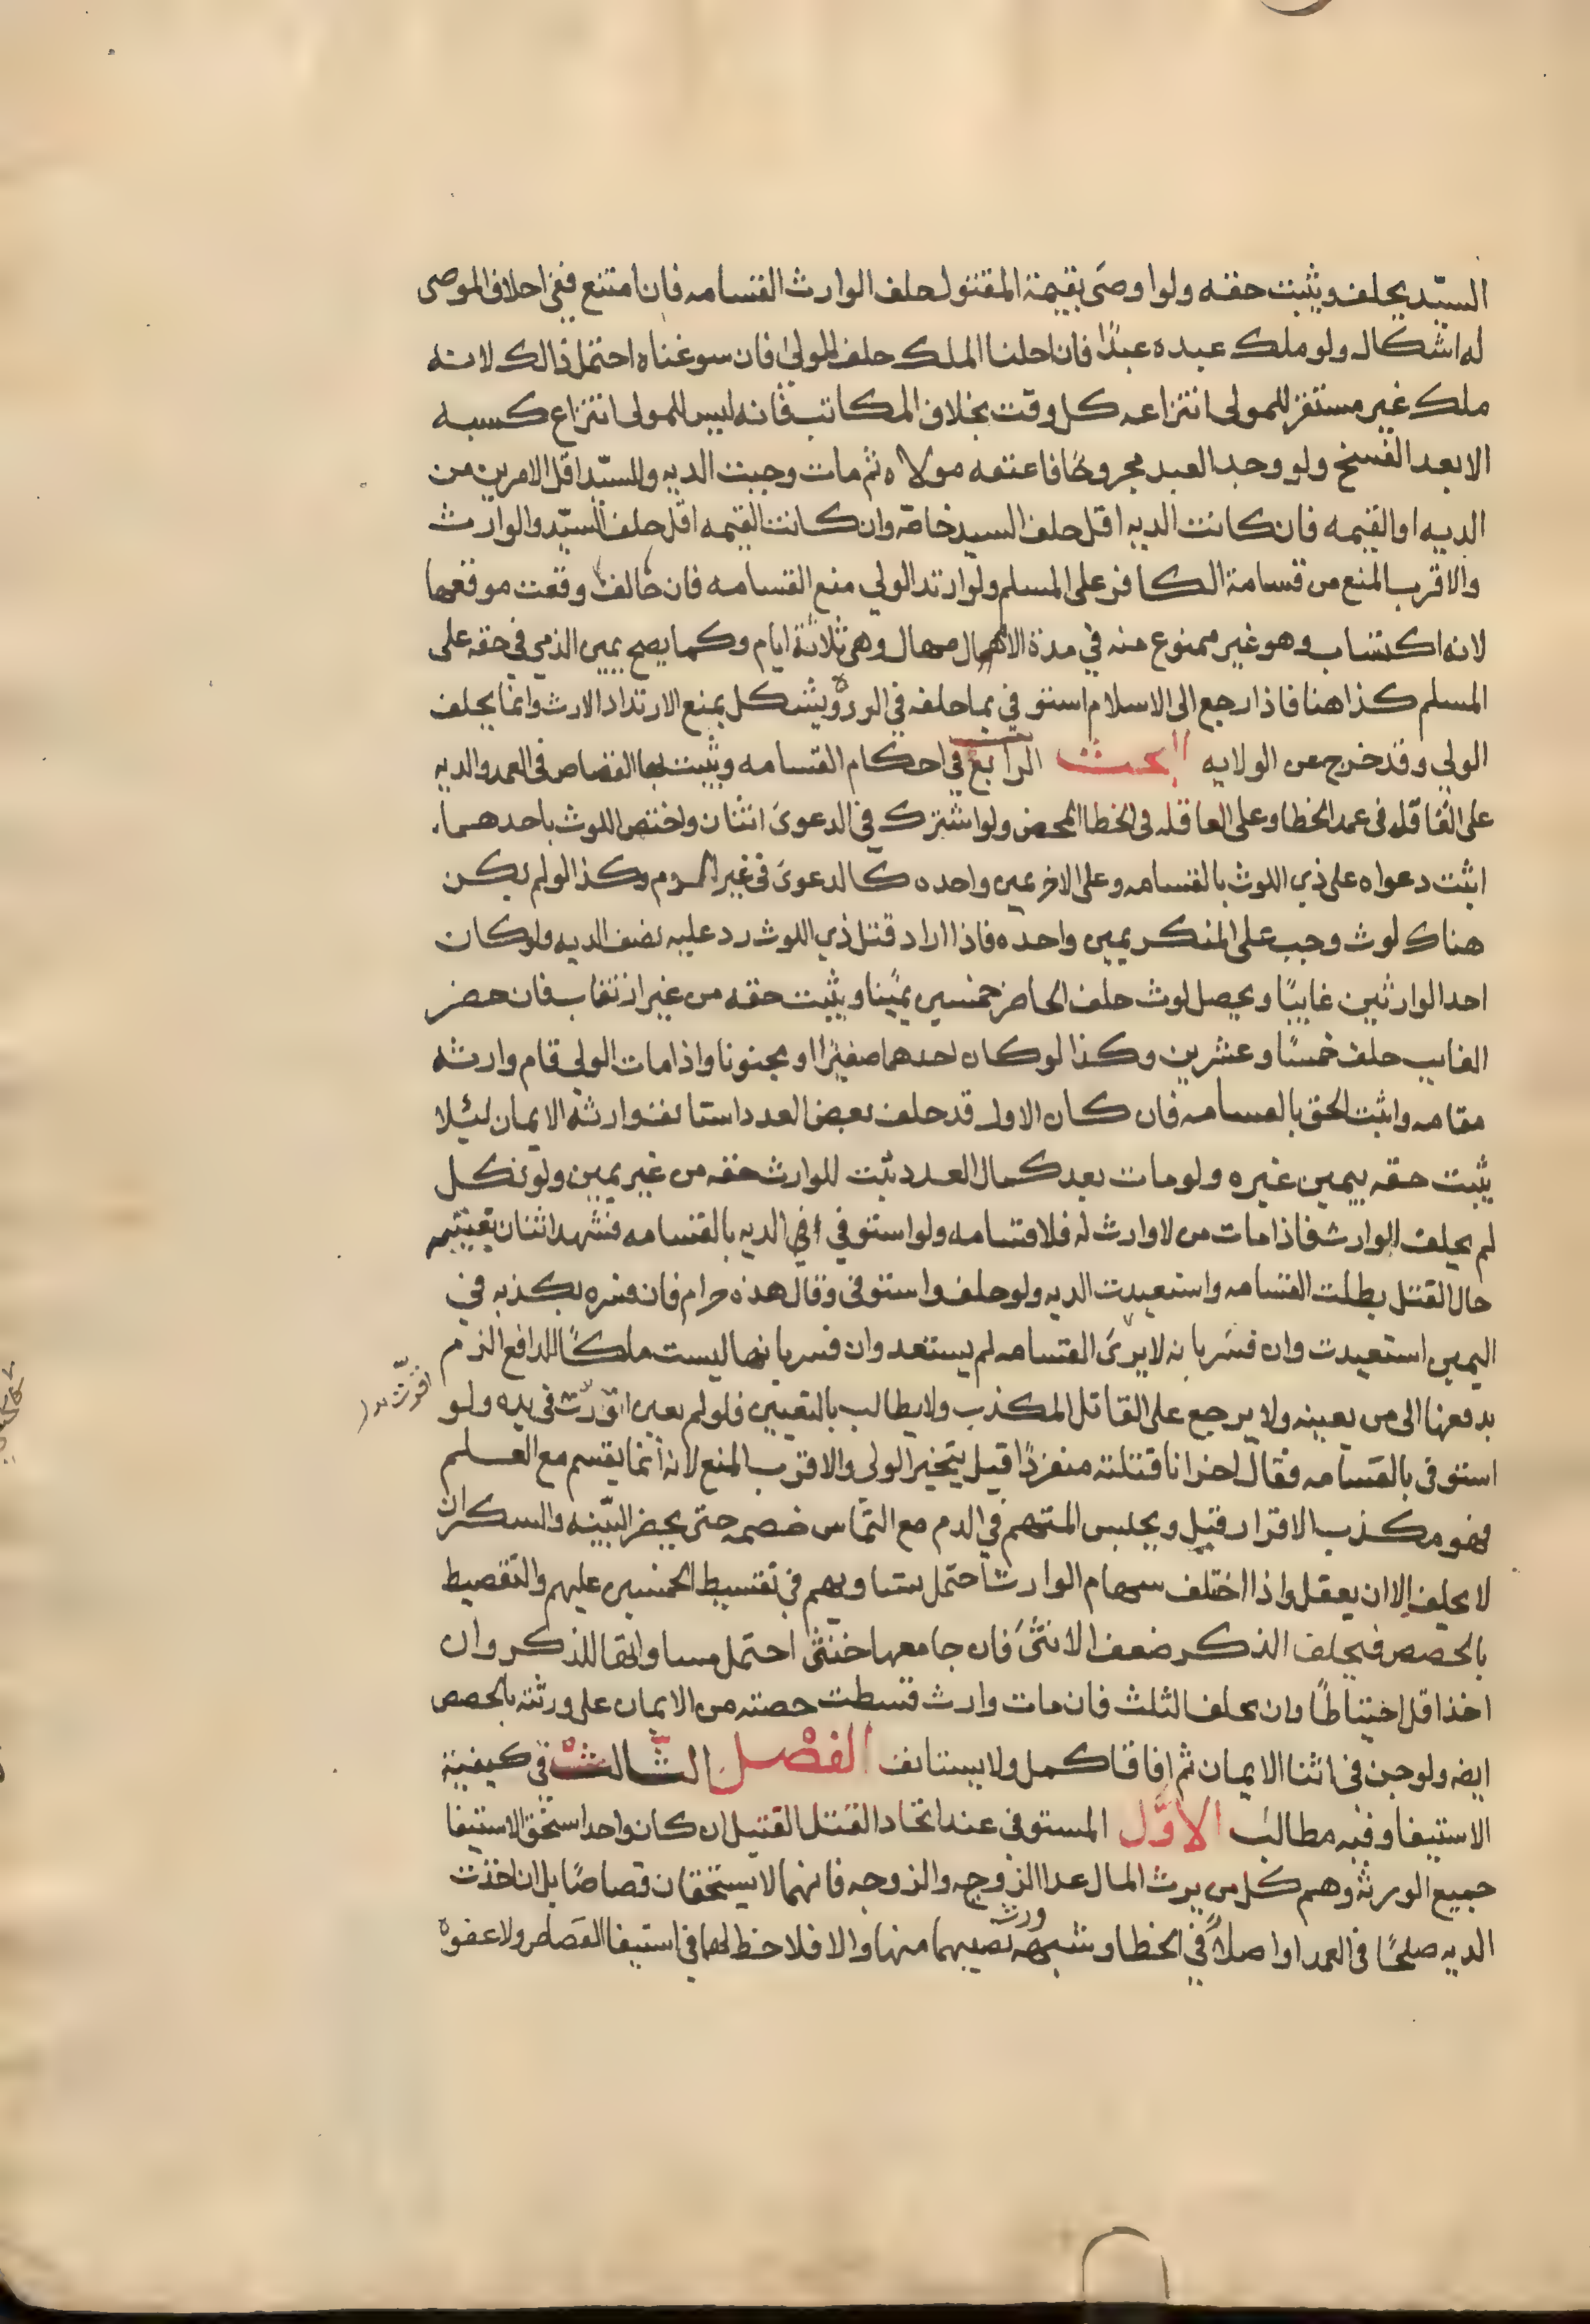 السيّد يحلف ويثبت حقه ولو اوصَى بقيمة المقتول حلف الوارث القسامه فان امتنع ففى احلاف الموصى
له اشكال ولو ملك عبده عبدًا فان احلنا الملك حلف المولى فان سوغناه احتمل ذالك لانه
ملك غير مستقر للمولى انتزاعه كل وقت بخلاف المكاتب فانه ليس للمولى انتزاع كسبه
الا بعد الفسخ ولو وجد العبد مجروحًا فاعتقه مولاه ثم مات وجبت الديه وللسيّد اقل الامرين من
الديه او القيمه فان كانت الديه اقل حلف السيد خاصّه وان كانت القيمه اقل حلف السيّد والوارث
والاقرب المنع من قسامة الكافر على المسلم ولو ارتد الولي منع القسامه فان خالف وقعت موقعها
لانه اكتساب وهو غير ممنوع منه في مدة الامهال وهى ثلاثة ايام وكما يصح يمين الذمي في حقه على
المسلم كذا هنا فاذا رجع الى الاسلام استوفي بما حلفه في الرده ويشكل بمنع الارتداد الارث وانما يحلف
الولي وقد خرج عن الولايه البحث الرابع في احكام القسامه ويثبت بها القصاص فى العمد والديه
على القاتل فى عمد الخطا وعلى العاقله فى الخطا المحض ولو اشترك في الدعوىَ اثنان واختص اللوث باحدهما
اثبت دعواه على ذي اللوث بالقسامه وعلى الاخر يمين واحده كالدعوىَ فى غير الدم وكذا لو لم يكن
هناك لوث وجب على المنكر يمين واحده فاذا اراد قتل ذي اللوث رد عليه نصف الديه ولو كان
احد الوارثين غايبًا ويحصل لوث حلف الحاضر خمسين يمينًا ويثبت حقه من غير ارتقاب فان حضر
الغايب حلف خمسًا وعشرين وكذا لو كان احدهما صغيرًا او مجنونا واذا مات الولي قام وارثه
مقامه واثبت الحق بالقسامه فان كان الاول قد حلف بعض العدد استانف وارثه الايمان لئلا
يثبت حقه بيمين غيره ولو مات بعد كمال العدد ثبت للوارث حقه من غير يمين ولو نكل
لم يحلف الوارث فاذا مات من لا وارث له فلا قسامه ولو استوفي الديه بالقسامه فشهد اثنان بغيبته
حال القتل بطلت القسامه واستعيدت الديه ولو حلف واستوفى وقال هذه حرام فان فسره بكذبه في
اليمين استعيدت وان فسّر بانه لا يرىَ القسامه لم يستعد وان فسر بانها ليست ملكًا للدافع الزم
بدفعها الى من يعينه ولا يرجع على القاتل المكذب ولا يطالب بالتعيين فلو لم يعين اقرّت فى يده ولو
اقرّت
استوفى بالقسَامه فقال اخر انا قتلته منفردًا قيل يتخير الولى والاقرب المنع لانه انما يقسم مع العلم
فهو مكذب الاقرار قيل ويحبس المتهم في الدم مع التماس خصمه حتى يحضر البيّنه والسكران
لا يحلف الا ان يعقل واذا اختلف سهام الوارث احتمل تساويهم في تقسيط الخمسين عليهم والتقصيط
بالحصص فيحلف الذكر ضعف الانثىَ فان جامعها خنثى احتمل مساواتها للذكر وان
اخذ اقل احتياطًا وان يحلف الثلث فان مات وارث قسطت حصته من الايمان على ورثته بالحصص
ايضه ولو جن فى اثنا الايمان ثم افاق اكمل ولا يستانف الفصل الثالث في كيفية
الاستيفا وفيه مطالب الاوّل المستوفي عند اتحاد القتل القتيل ان كان واحدا استحق الاستيفا
جميع الورثه وهم كل من يرث المال عدا الزوج والزوجه فانهما لا يستحقان قصاصًا بل ان اخذت
الديه صلحًا فى العمد او اصلاً في الخطا وشبهه ورثه نصيبهما منها والا فلا حظ لهما في استيفا القصاص ولا عفوه